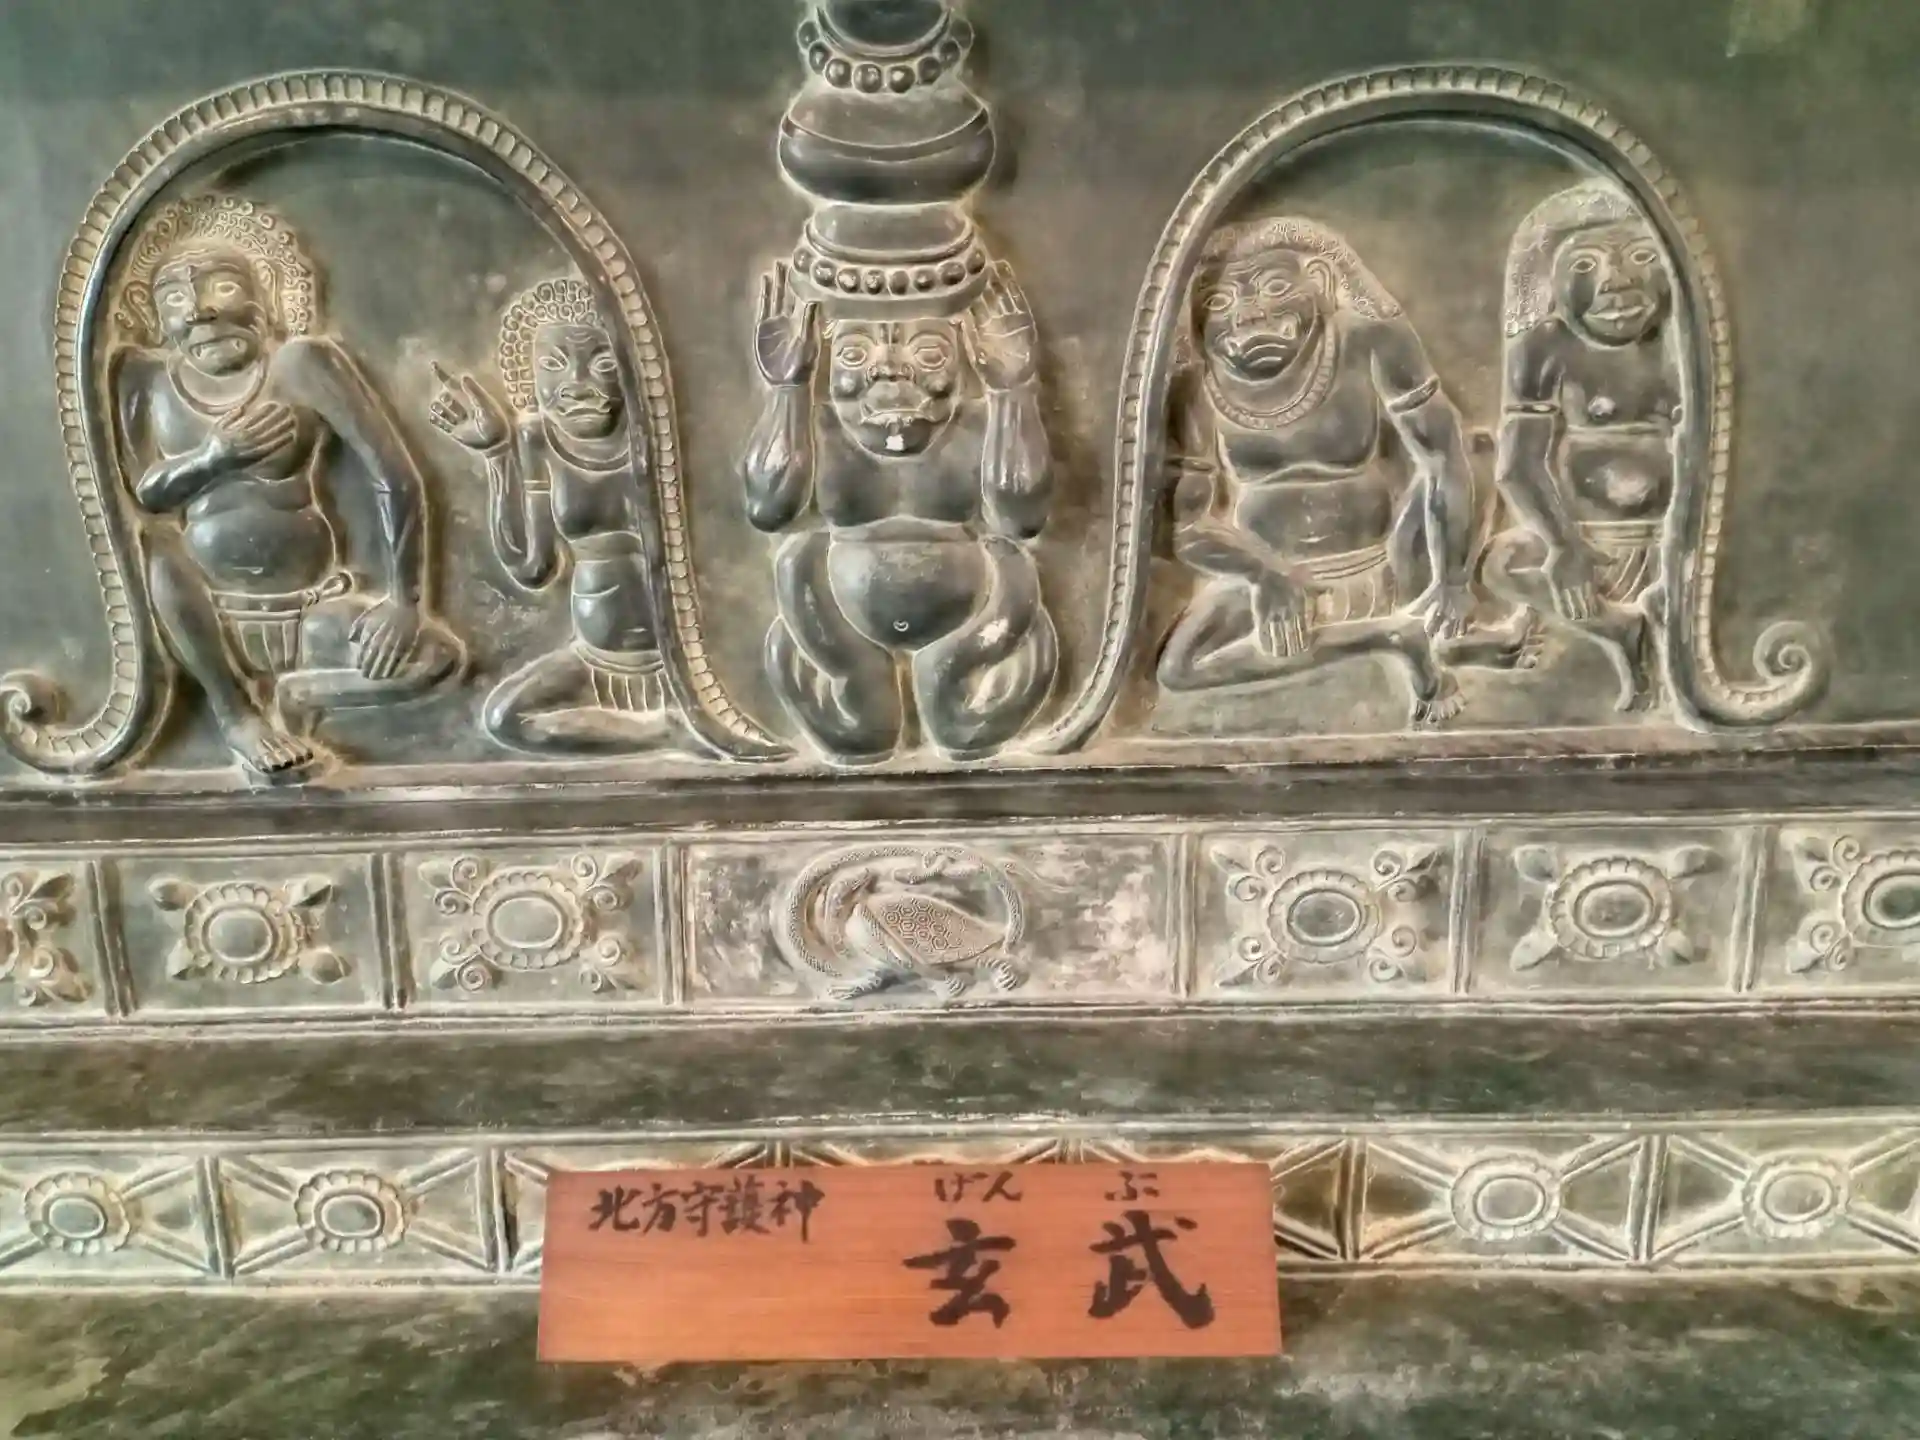 北方守護神
げんぶ
玄武